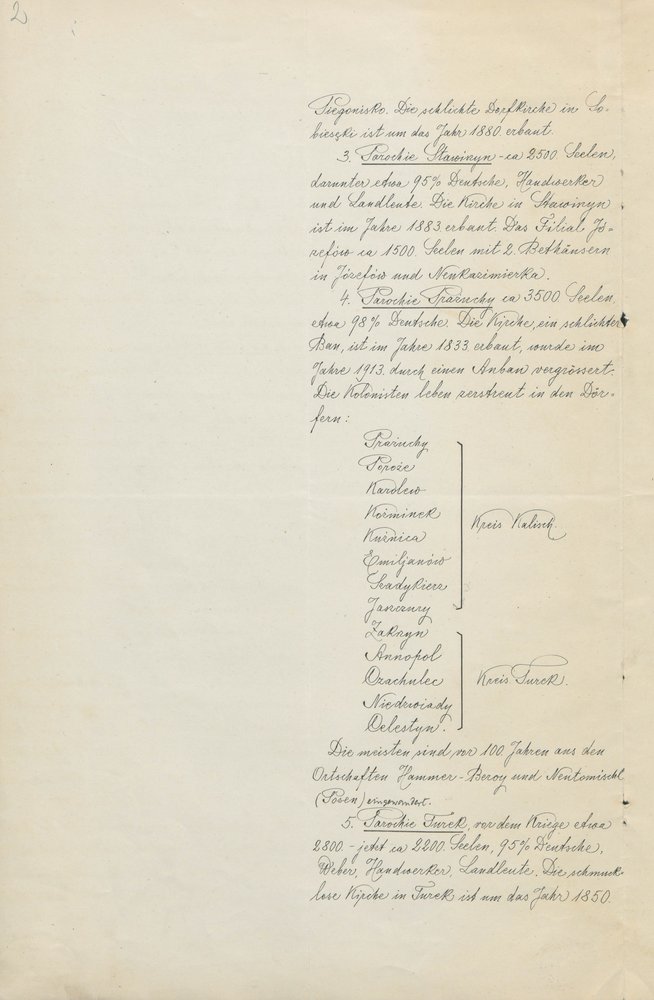 2
Piegonisko. Die schlichte Dorfkirche in So-
bieseki ist um das Jahr 1880 erbaut.
3. Parochie Stawiszyn - ca 2500 Seelen,
darunter etwa 95% Deutsche, Handwerker
und Landleute. Die Kirche in Stawiszyn
ist im Jahre 1883 erbaut. Das Filial Jó-
zefów ca 1500 Seelen mit 2 Bethäusern
in Józefów und Neukazimierka.
4. Parochie Prażuchy ca 3500 Seelen,
etwa 98% Deutsche. Die Kirche, ein schlichter
Bau, ist im Jahre 1833 erbaut, wurde im
Jahre 1913 durch einen Anbau vergrössert.
Die Kolonisten leben zerstreut in den Dör-
fern:
Prażuchy
Poroże
Karolew
Koźminek
Kuźnica
Emiljanów
Szadykierz
Jaszczury
Kreis Kalisch
Zakrzyn
Annopol
Ozachulec
Niedzwiady
Celestyn.
Kreis Turek.
Die meisten sind vor 100 Jahren aus den
Ortschaften Hammer-Boruy und Neutomischl
(Posen) eingewandert.
5. Parochie Turek, vor dem Kriege etwa
2800 - jetzt ca 2200 Seelen, 95% Deutsche,
Weber, Handwerker, Landleute. Die schmuck-
lose Kirche in Turek ist um das Jahr 1850